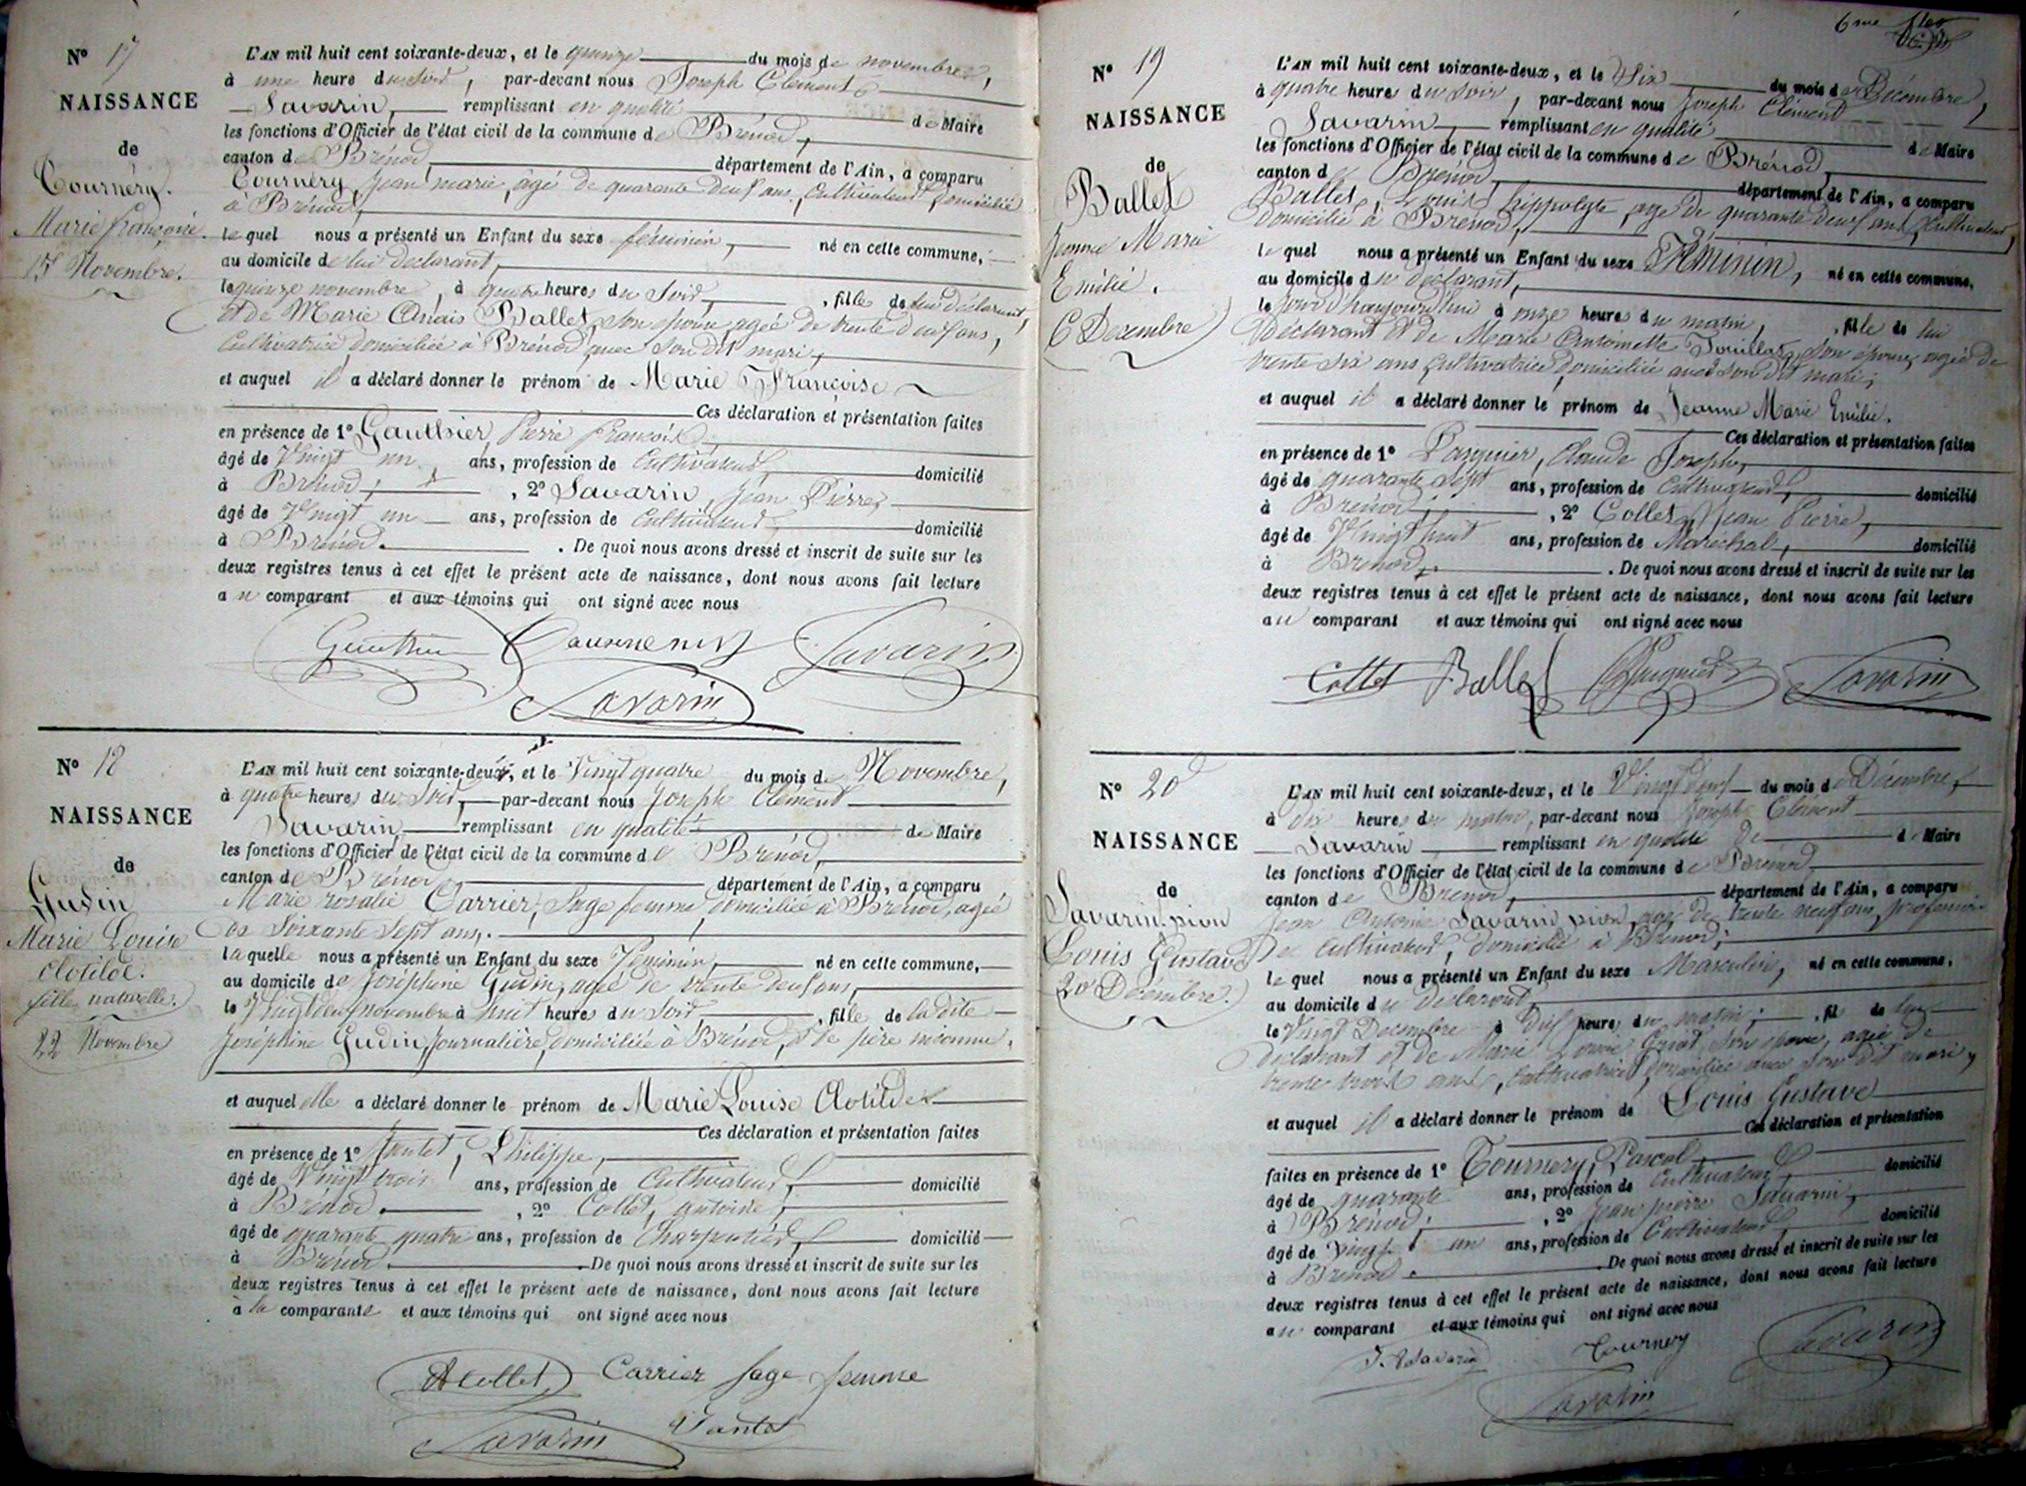 N° 17
NAISSANCE
de
Tournéry.
Marie françoise.
15 Novembre.
L'AN mil huit cent soixante-deux, et le quinze du mois de novembre,
à une heure du soir, par-devant nous Joseph Clément
Savarin, remplissant en qualité de Maire
les fonctions d'Officier de l'état civil de la commune de Brénod,
canton de Brénod département de l'Ain, a comparu
Tournéry Jean marie, âgé de quarante deux ans, Cultivateur domicilié
à Brénod,
lequel nous a présenté un Enfant du sexe féminin, né en cette commune,
au domicile de lui déclarant,
le quinze novembre, à quatre heures du soir, fille de lui déclarant,
et de Marie Anaïs Ballet, son épouse, agée de trente deux ans,
Cultivatrice domiciliée à Brénod avec son dit mari,
et auquel il a déclaré donner le prénom de Marie Françoise
Ces déclaration et présentation faites
en présence de 1° Gauthier, Pierre françois
âgé de Vingt un ans, profession de Cultivateur, domicilié
à Brénod, , 2° Savarin, Jean Pierre,
âgé de Vingt un ans, profession de Cultivateur, domicilié
à Brénod. . De quoi nous avons dressé et inscrit de suite sur les
deux registres tenus à cet effet le présent acte de naissance, dont nous avons fait lecture
au comparant et aux témoins qui ont signé avec nous
Gauthier Tournery Savarin
Savarin
N° 18
NAISSANCE
de
Gudin
Marie Louise
Clotilde.
fille naturelle.
22 Novembre
L'AN mil huit cent soixante-deux, et le Vingt quatre du mois de Novembre,
à quatre heures du soir, par-devant nous Joseph Clément
Savarin, remplissant en qualité de Maire
les fonctions d'Officier de l'état civil de la commune de Brénod,
canton de Brénod, département de l'Ain, a comparu
Marie rosalie Carrier, Sage femme, domiciliée à Brénod, agée
de Soixante Sept ans,
laquelle nous a présenté un Enfant du sexe Féminin, né en cette commune,
au domicile de Joséphine Gudin, agée de trente deux ans,
le Vingt deux novembre à huit heures du Soir, , fille de la dite
Joséphine Gudin, Journalière, domiciliée à Brénod, et de père inconnu,
et auquel elle a déclaré donner le prénom de Marie Louise Clotilde
Ces déclaration et présentation faites
en présence de 1° Jantet, Philippe,
âgé de Vingt trois ans, profession de Cultivateur, domicilié
à Brénod. , 2° Collet, antoine,
âgé de quarante quatre ans, profession de Charpentier, domicilié
à Brénod. De quoi nous avons dressé et inscrit de suite sur les
deux registres tenus à cet effet le présent acte de naissance, dont nous avons fait lecture
à la comparante et aux témoins qui ont signé avec nous
A Collet Carrier Sage femme
Savarin Jantet
6me
N° 19
NAISSANCE
de
Ballet
Jeanne Marie
Emilie.
6 Decembre
L'AN mil huit cent soixante-deux, et le Six du mois de Décembre,
à quatre heures du soir, par-devant nous Joseph Clément
Savarin, remplissant en qualité de Maire
les fonctions d'Officier de l'état civil de la commune de Brénod,
canton de Brénod, département de l'Ain, a comparu
Ballet, Louis hippolyte, agé de quarante deux ans, Cultivateur,
domicilié à Brénod,
lequel nous a présenté un Enfant du sexe Féminin, né en cette commune,
au domicile du déclarant,
le jour d'haujourd'hui à onze heures du matin, , fille de lui
déclarant et de Marie Antoinette son épouse, agée de
trente six ans Cultivatrice domiciliée avec son dit mari,
et auquel il a déclaré donner le prénom de Jeanne Marie Emilie.
Ces déclaration et présentation faites
en présence de 1° Claude Joseph,
âgé de quarante sept ans, profession de Cultivateur, domicilié
à Brénod, , 2° Collet, Jean Pierre,
âgé de Vingt huit ans, profession de Maréchal, domicilié
à Brénod. . De quoi nous avons dressé et inscrit de suite sur les
deux registres tenus à cet effet le présent acte de naissance, dont nous avons fait lecture
au comparant et aux témoins qui ont signé avec nous
Collet Ballet Savarin
N° 20
NAISSANCE
de
Savarin pion
Louis Gustave
20 Décembre.
L'AN mil huit cent soixante-deux, et le Vingt deux du mois de Décembre,
à dix heures du matin, par-devant nous Joseph Clément
Savarin remplissant en qualité de de Maire
les fonctions d'Officier de l'état civil de la commune de Brénod,
canton de Brénod, département de l'Ain, a comparu
Jean Antoine Savarin pion, agé de trente neuf ans, profession
de Cultivateur, domicilié à Brénod;
lequel nous a présenté un Enfant du sexe Masculin, né en cette commune,
au domicile du déclarant,
le Vingt Decembre à Dix heures du matin; , fils de lui
déclarant et de Marie Louise son épouse, agée de
trente trois ans, Cultivatrice domiciliée avec son dit mari,
et auquel il a déclaré donner le prénom de Louis Gustave
Ces déclaration et présentation
faites en présence de 1° Tournery, Pascal
âgé de quarante ans, profession de Cultivateur, domicilié
à Brénod; , 2° Jean pierre Savarin,
âgé de Vingt un ans, profession de Cultivateur domicilié
à Brénod. . De quoi nous avons dressé et inscrit de suite sur les
deux registres tenus à cet effet le présent acte de naissance, dont nous avons fait lecture
au comparant et aux témoins qui ont signé avec nous
J. A Savarin Tournery Savarin
Savarin